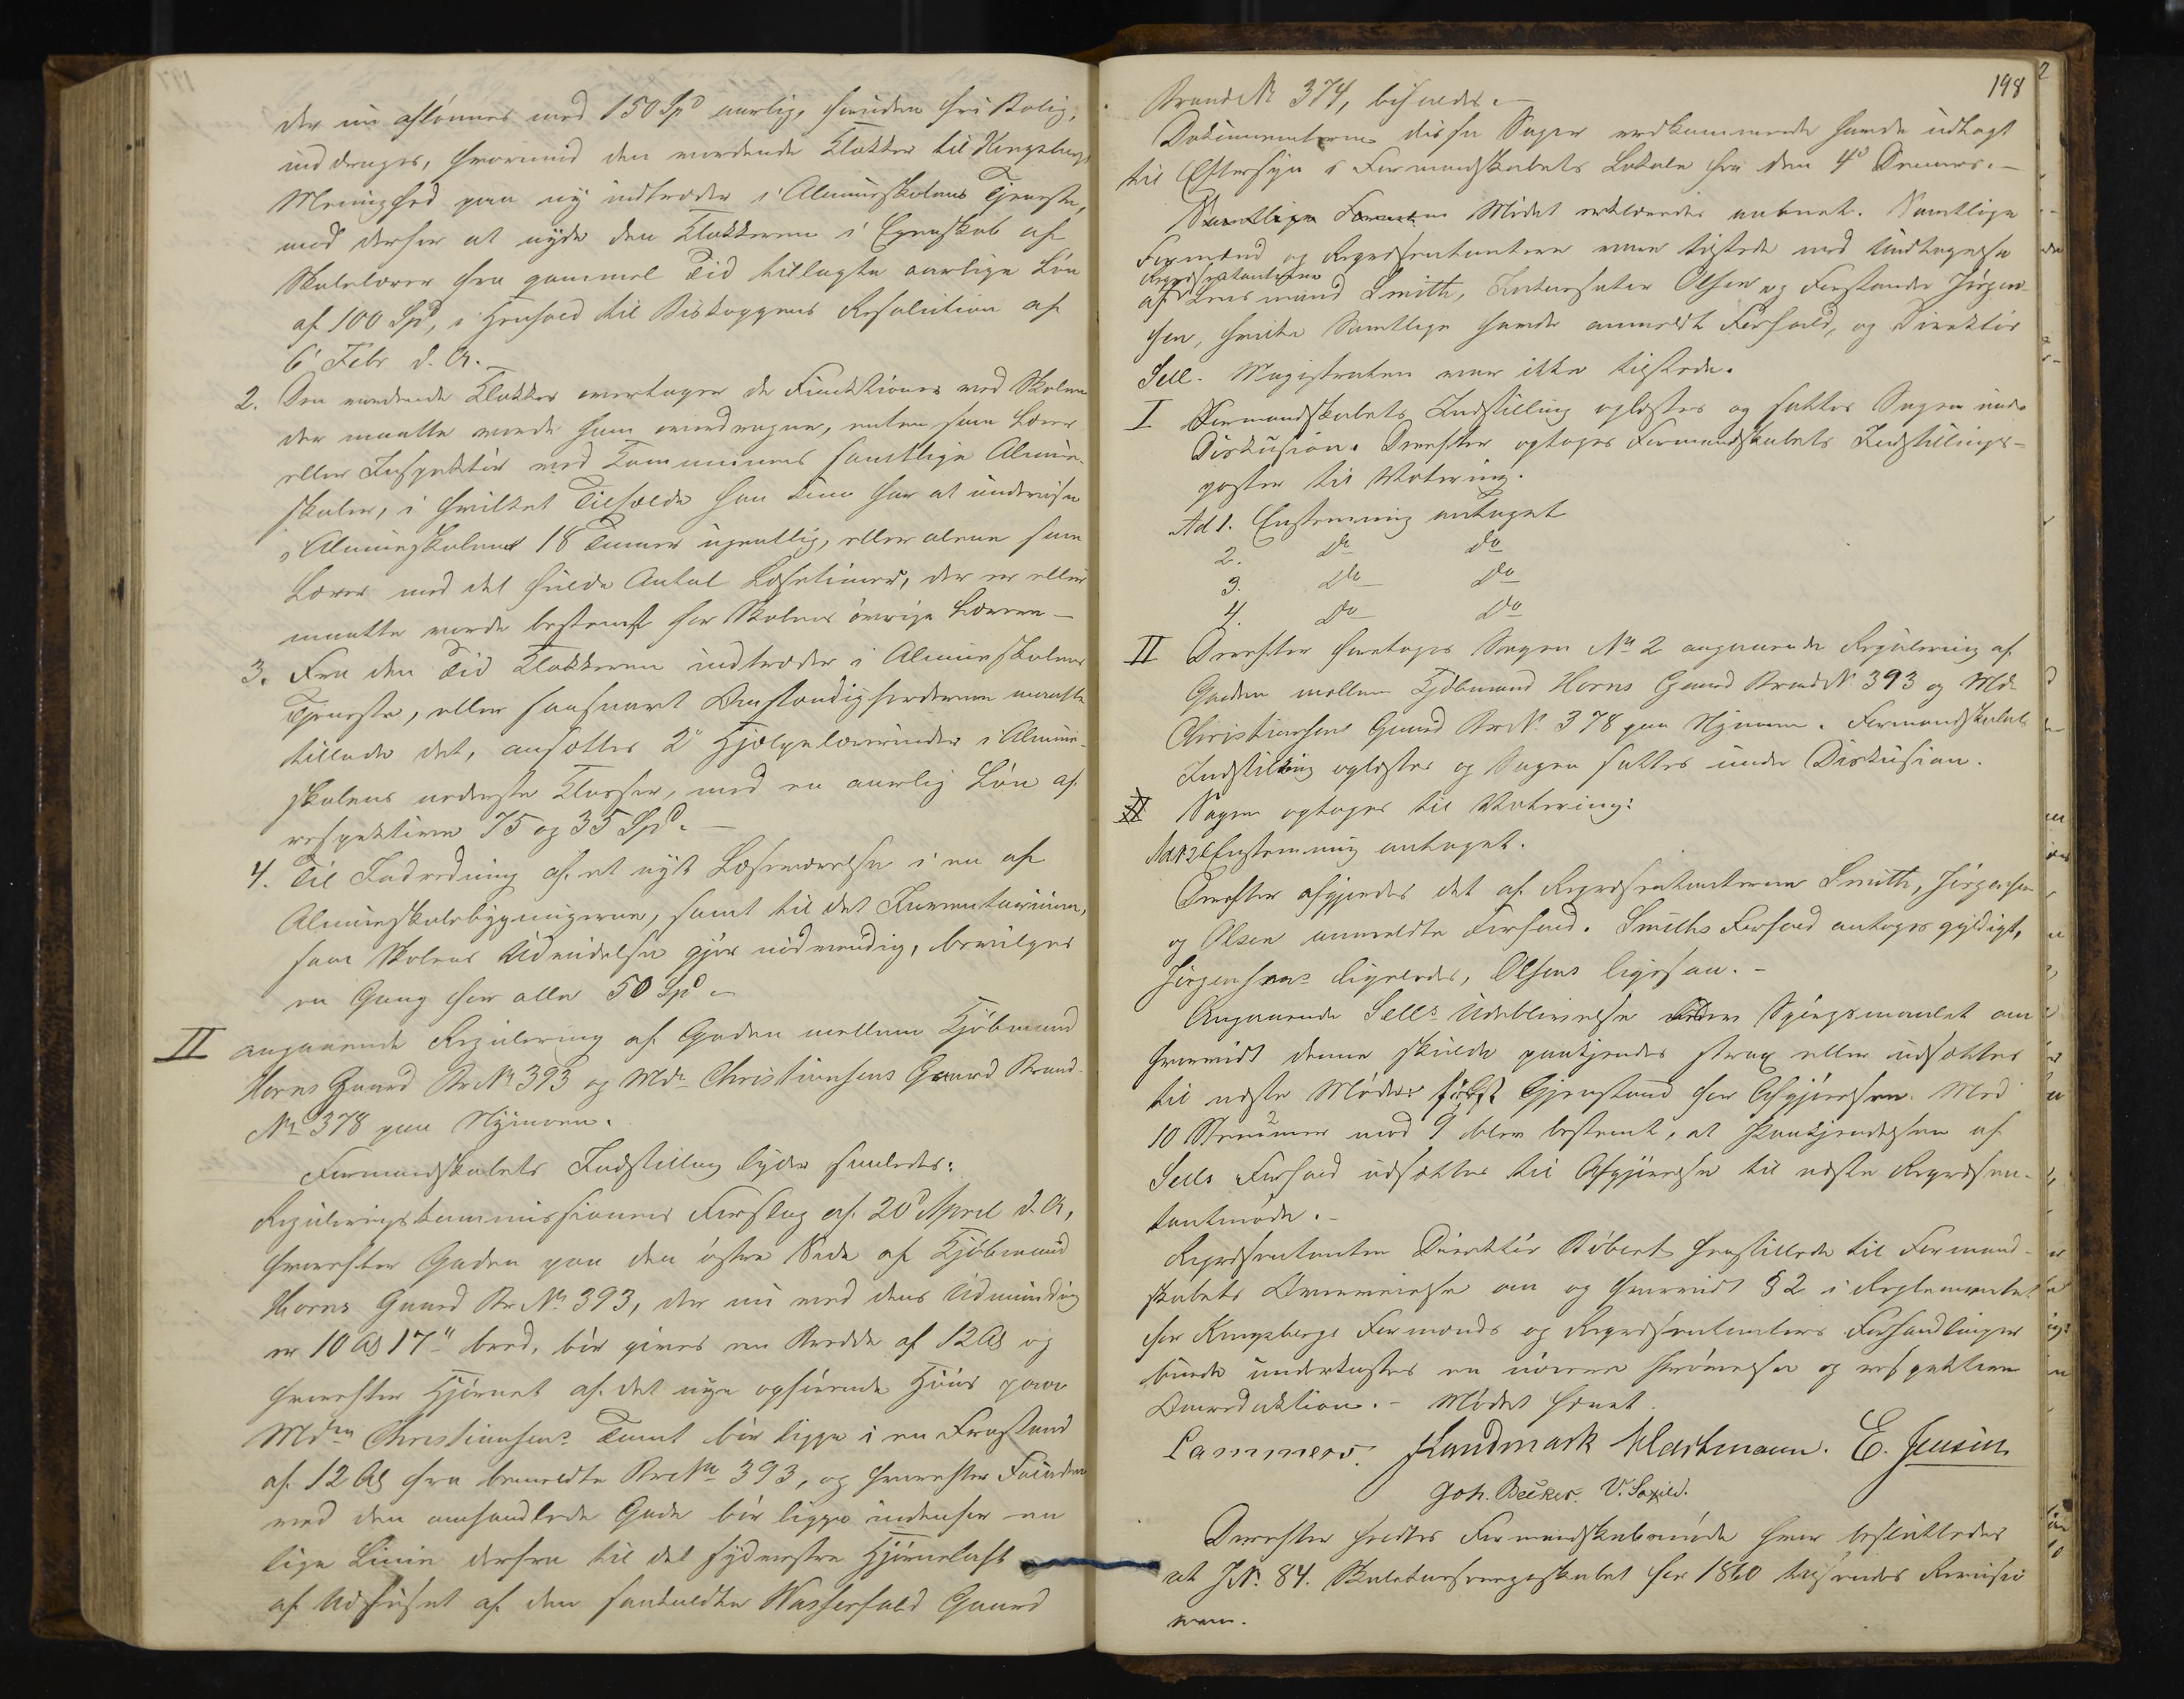 der nu aflønnes med 150 Spd aarlig, foruden fri Bolig,
inddrages, hvorimod den vordende Klokker til Kongsbergs
Menighed paa ny indtræder i Almueskolens Tjeneste,
med derfor at nyde den Klokkeren i Egenskab af
Skolelærer fra gammel Tid tillagte aarlige Løn
af 100 Spd, i Henhold til Biskoppens Resolution af
6' Febr d. A.
2. Den vordende Klokker overtager de Funktioner ved Skolen
der maatte vorde ham overdragne, enten som Lærer
eller Inspektør ved Kommunens samtlige Almue-
skoler, i hvilket Tilfælde han kun har at undervise
i Almueskolen 18 Timer ugentlig, eller alene som
Lærer med det fulde Antal Læsetimer, der er eller
maatte vorde bestemt for Skolens øvrige Lærere –
3. Fra den Tid Klokkeren indtræder i Almueskolens
Tjeneste, eller saasnart Omstændighederne maatte
tillade det, ansættes 2de Hjælpelærerinder i Almue-
skolens nederste Klasser, med en aarlig Løn af
respektive 75 og 35 Spd. –
4. Til Indredning af et nyt Læseværelse i en af
Almueskolebygningerne, samt til det Inventarium,
som Skolens Udvidelse gjør nødvendig, bevilges
en Gang for alle 50 Spd –
II angaaende Regulering af Gaden mellem Kjøbmand
Horns Gaard Br No 393 og Mde Christiansens Gaard Brand-
No 378 paa Nymoen.
Formandskabets Indstilling lyder saaledes:
Reguleringskommissionens Forslag af 20d April d. A,
hvorefter Gaden paa den østre Side af Kjøbmand
Horns Gaard Br No 393, der nu ved dens Udmunding
er 10 Al 17" bred, bør gives en Bredde af 12 Al og
hvorefter Hjørnet af det nye opførende Huus paa
Mdm Christiansens Tomt bør ligge i en Frastand
af 12 Al fra bemeldte Br No 393, og hvorefter Facaden
ved den omhandlede Gade bør ligge indenfor en
lige Linie derfra til det sydvestre Hjørne
af Udhuset af den saakaldte Wasserfald Gaard
198
Brand No 374, bifaldes. –
Dokumenterne disse Sager vedkommende havde udlagt
til Eftersyn i Formandskabets Lokale fra den 4d Dennes. –
Samtlige Formæn Mødet erklæredes aabnet. Samtlige
Formænd og Repræsentanter vare tilstede med Undtagelse
Repræsentanterne
af Lensmand Smith, Olsen og Forstander Jørgen-
sen, hvilke Samtlige havde anmeldt Forfald, og Direktør
Sell. Magistraten var ikke tilstede.
I Formandskabets Indstilling oplæstes og sattes Sagen under
Diskusion. Derefter optoges Formandskabets Indstillings-
poster til Votering.
Ad 1. Enstemmig antaget
2. do do
3. do do
4. do do
II Derefter foretoges Sagen No 2 angaaende Regulering af
Gaden mellem Kjøbmand Horns Gaard Brand N. 393 og Mde
Christiansens Gaard Br N. 378 paa Nymoen. Formandskabets
Indstilling oplæstes og Sagen sattes under Diskusion.
II Sagen optoges til Votering:
Enstemmig antaget.
Derefter afgjordes det af Repræsentanterne Smith, Jørgensen
og Olsen anmeldte Forfald. Smiths Forfald antoges gyldigt,
Jørgensens ligeledes, Olsens ligesaa. –
Angaaende Sells Udeblivelse Spørgsmaalet om
hvorvidt denne skulde paakjendes strax eller udsættes
til næste Møde først Gjenstand for Afgjørelsen. Med
10 Stemmer mod 9 blev bestemt, at Paakjendelsen af
Sells Forfald udsættes til Afgjørelse til næste Repræsen-
tantmøde. –
Repræsentanten Direktør Bøbert henstillede til Formand-
skabets Overveielse om og hvorvidt § 2 i Reglementet
for Kongsbergs Formænds og Repræsentanters Forhandlinger
burde underkastes en nøiere Prøvelse og respektive
Omredaktion. – Mødet hævet.
Lammers. Landmark Hartmann. E. Jensen
Joh. Becker. V. Saxild.
Derefter holdtes Formandskabsmøde hvor besluttedes
at J N. 84. Skatteregnskabet for 1860 tilsendes Reviso